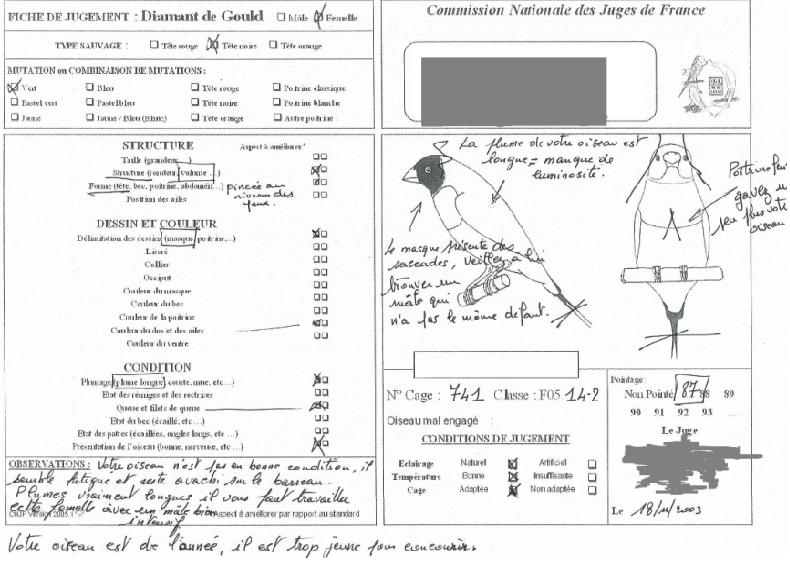 FICHE DE JUGEMENT : Diamant de Gould ☐ Mâle ☒ Femelle
TYPE SAUVAGE : ☐ Tête rouge ☒ Tête noire ☐ Tête orange
MUTATION ou COMBINAISON DE MUTATIONS :
☒ Vert ☐ Bleu ☐ Tête rouge ☐ Poitrine classique
☐ Pastel vert ☐ Pastel bleu ☐ Tête noire ☐ Poitrine blanche
☐ Jaune ☐ Jaune / Bleu (Blanc) ☐ Tête orange ☐ Autre poitrine :
Commission Nationale des Juges de France
STRUCTURE Aspect à améliorer
Taille (grandeur, ...)
Structure (rondeur, volume ...)
Forme (tête, bec, poitrine, abdomen ...) pincée au
niveau des
yeux.
Position des ailes
DESSIN ET COULEUR
Délimitation des dessins (masque, poitrine, ...)
Liseré
Collier
Occiput
Couleur du masque
Couleur du bec
Couleur de la poitrine
Couleur du dos et des ailes
Couleur du ventre
CONDITION
Plumage (plume longue, courte, mue, etc ...)
Etat des rémiges et des rectrices
Queue et filets de queue
Etat du bec (écaillé, etc ...)
Etat des pattes (écaillées, ongles longs, etc ...)
Présentation de l'oiseau (bonne, nerveuse, etc ...)
OBSERVATIONS : Votre oiseau n'est pas en bonne condition, il
semble fatigué et reste avachi sur le barreau.
Plumes vraiment longues il vous faut travailler
cette femelle avec un mâle bien
intensif.
Aspect à améliorer par rapport au standard
Votre oiseau est de l'année, il est trop jeune pour concourir.
La plume de votre oiseau est
longue = manque de
luminosité.
Le masque présente des
saccades, veillez à lui
trouver un
mâle qui
n'a pas le même défaut.
gavez un
peu plus votre
oiseau
N° Cage : 741 Classe : F05 14-2
Oiseau mal engagé :
CONDITIONS DE JUGEMENT
Eclairage Naturel ☒ Artificiel ☐
Température Bonne ☒ Insuffisante ☐
Cage Adaptée ☒ Non adaptée ☐
Pointage :
Non Pointé 87 88 89
90 91 92 93 ....
Le Juge
Le 18/11/2003